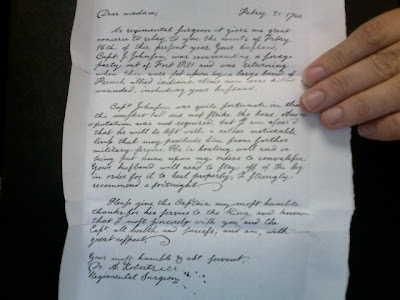 Dear madam, Febry. 21 1760
As regimental Surgeon it gives me great
concern to relay to you the events of Febry
16th of this present year. Your husband,
Capt. J. Johnson, was commanding a forage
party out of Fort Pitt and was returning
when they were set upon by a large band of
French allied indians. Nine men were killed
wounded, including your husband.
Capt. Johnson was quite fortunate in that
the musket ball did not strike the bone.
amputation was not required, but I am afraid
that he will be left with a rather noticeable
limp that may preclude him from further
military service. He is healing well and is
being sent home upon my orders to convalesce.
Your husband will need to stay off of the leg
in order for it to heal properly, I strongly
recommend a fortnight.
Please give the Captain my most humble
thanks for his service to the King, and know
that I most sincerely wish you and the
Capt. all health and success, and am, with
great respect,
Your most humble & obt. servant,
Dr. A.
Regimental Surgeon